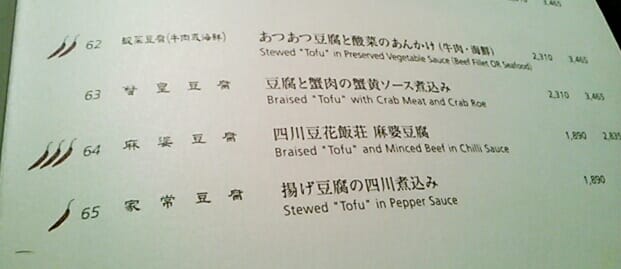 3,465
62 酸菜豆腐(牛肉或海鮮) あつあつ豆腐と酸菜のあんかけ (牛肉・海鮮)
Stewed "Tofu" in Preserved Vegetable Sauce (Beef Fillet OR Seafood) 2,310 3,465
63 皇豆腐 豆腐と蟹肉の蟹黄ソース煮込み 2,310 3,465
Braised "Tofu" with Crab Meat and Crab Roe
64 麻婆豆腐 四川豆花飯荘 麻婆豆腐 1,890 2,835
Braised "Tofu" and Minced Beef in Chilli Sauce
65 家常豆腐 揚げ豆腐の四川煮込み 1,890
Stewed "Tofu" in Pepper Sauce